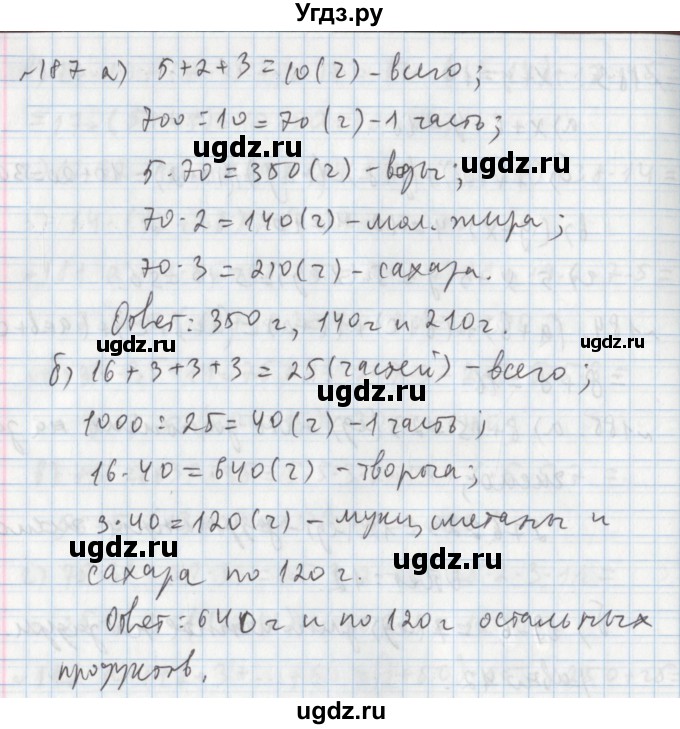 Угдз.ру
№187 а) 5+2+3=10(г) - всего;
700:10=70(г) - 1 часть;
угдз.ru
5·70=350(г) - воды;
70·2=140(г) - мол. жира;
70·3=210(г) - сахара.
Ответ: 350 г, 140г и 210г.
ugdz.ru
ugdz.ru
ugdz.ru
б) 16+3+3+3=25(частей) - всего;
ugdz.ru
1000:25=40(г) - 1 часть;
16·40=640(г) - творога;
3·40=120(г) - муки, сметаны и
ugdz.ru
ugdz.ru
сахара по 120 г.
Ответ: 640г и по 120г остальных
продуктов.
ugdz.ru
ugdz.ru